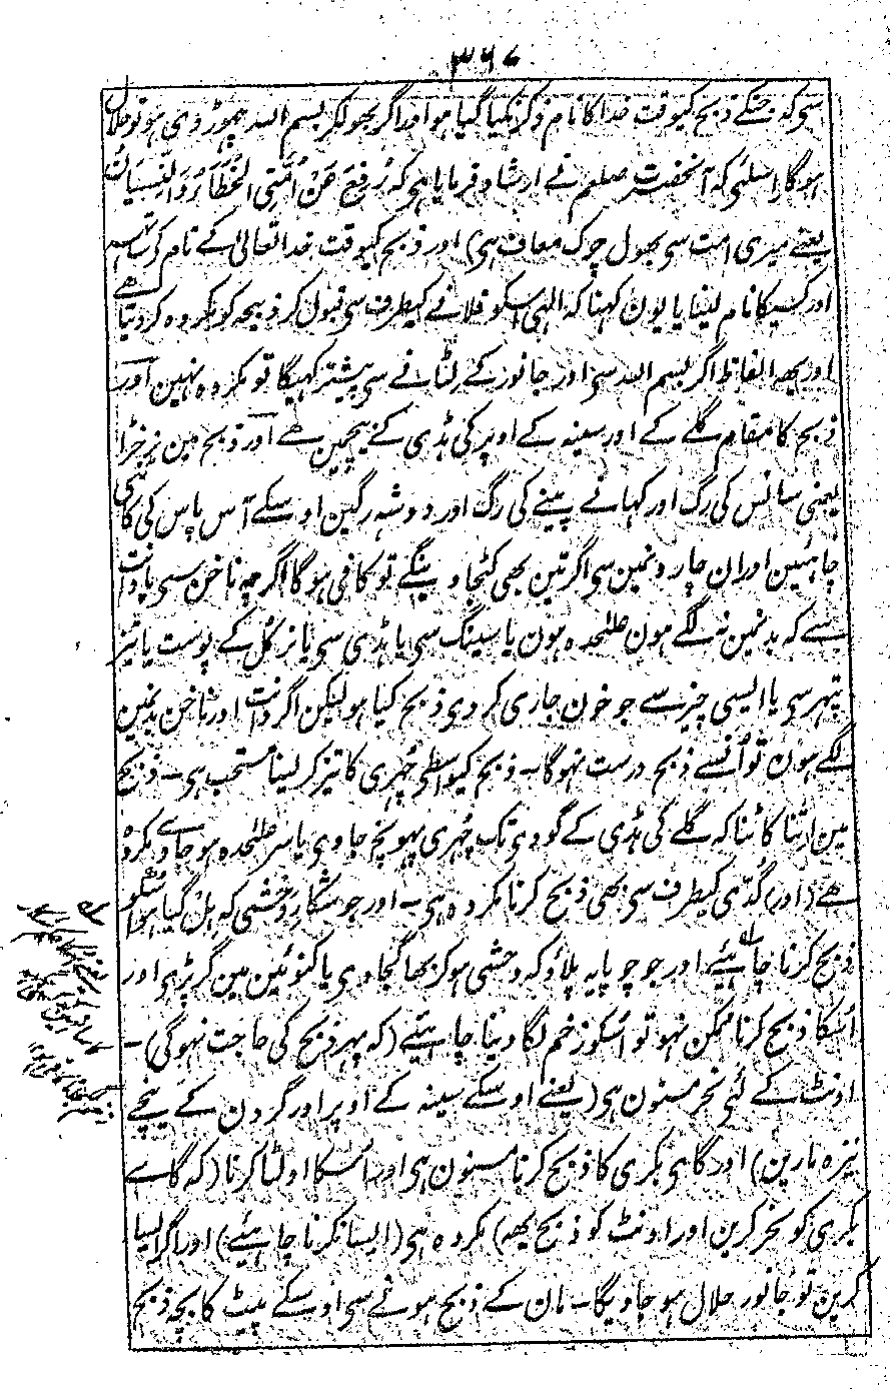 ۳۶۷
سی کہ جنکے ذبح کیوقت خدا کا نام ذکر نکیا گیا ہو اور اگر بھولکر بسم اللہ چھوڑ دی ہو تو حلال
ہوگا اسلئی کہ آنحضرت صلعم نے ارشاد فرمایا ہی کہ رُفِعَ عَنْ اُمَّتِی الْخَطَاءُ وَالنِّسْیَانُ
یعنے میری امت سی بھول چوک معاف ہی) اور ذبح کیوقت خدا تعالیٰ کے نام کی ساتھہ
اور کسیکا نام لینا یا یون کہنا کہ الہی اسکو فلانے کیطرف سی قبول کر ذبیحہ کو مکروہ کردیتا ھے
اور یھہ الفاظ اگر بسم اللہ سی اور جانور کے لٹانے سی پیشتر کہیگا تو مکروہ نہین اور
ذبح کا مقام گلے کے اور سینہ کے اوپر کی ہڈی کے بیچمین ھے اور ذبح مین نرخڑا
یعنی سانس کی رگ اور کہانے پینے کی رگ اور دو شہ رگین اوسکے آس پاس کی کاٹنی
چاہئین اور ان چارونمین سی اگر تین بھی کٹجاوینگے تو کافی ہوگا اگرچہ ناخن سی یا دانت
سے کہ بدنمین نہ لگے ہون علٰحدہ ہون یا سینگ سی یا ہڈی سی یا نرکل کے پوست یا تیز
پتہر سی یا ایسی چیز سے جو خون جاری کر دی ذبح کیا ہو لیکن اگر دانت اور ناخن بدنمین
لگے ہون تو اُنسے ذبح درست نہوگا ۔ ذبح کیواسطی چُہری کا تیز کرلینا مستحب ہی ۔ ذبح
مین اتنا کاٹنا کہ گلے کی ہڈی کے گودی تک چُہری پہونچ جاوی یا سر علٰحدہ ہو جاوے مکروہ
ھے (اور) گُدّی کیطرف سی بھی ذبح کرنا مکروہ ہی ۔ اور جو شکار وحشی کہ ہل گیا ہو اُسکو
ذبح کرنا چاہئیے اور جو چوپایہ پلاؤ کہ وحشی ہوکر بھاگجاوی یا کنوئین مین گر پڑہی اور
اُسکا ذبح کرنا ممکن نہو تو اُسکو زخم لگا دینا چاہئیے (کہ پہر ذبح کی حاجت نہوگی) ۔
اونٹ کے لئی نحر مسنون ہی (یعنے اوسکے سینہ کے اوپر اور گردن کے نیچے
نیزہ مارین) اور گای بکری کا ذبح کرنا مسنون ہی اور اُسکا اولٹا کرنا (کہ گاے
بکری کو نحر کرین اور اونٹ کو ذبح یھہ) مکروہ ہی (ایسا نکرنا چاہئیے) اور اگر ایسا
کرین تو جانور حلال ہو جاویگا ۔ مان کے ذبح ہونے سی اوسکے پیٹ کا بچہ ذبح